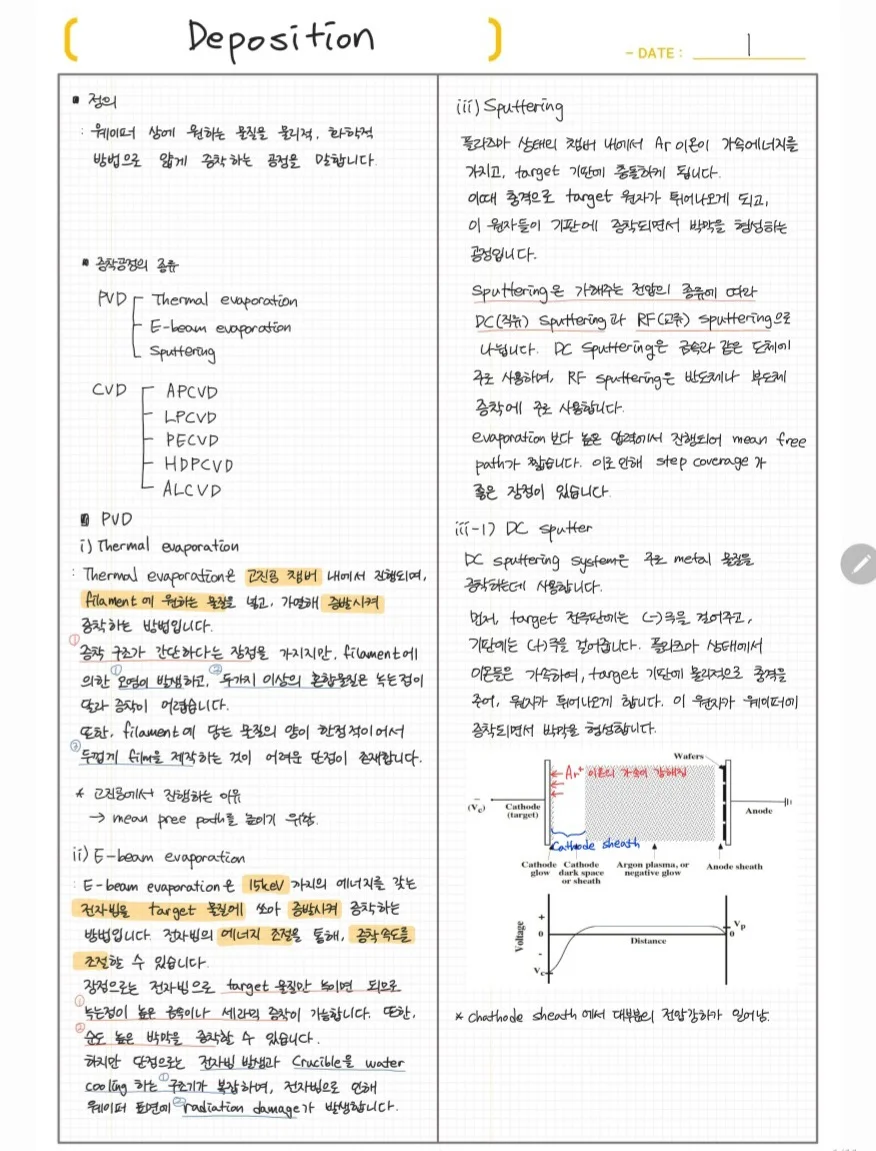 Deposition
- DATE : 1
▪ 정의
: 웨이퍼 상에 원하는 물질을 물리적, 화학적
방법으로 얇게 증착하는 공정을 말합니다.
▪ 증착공정의 종류
PVD Thermal evaporation
E-beam evaporation
Sputtering
CVD APCVD
LPCVD
PECVD
HDPCVD
ALCVD
▪ PVD
i) Thermal evaporation
: Thermal evaporation은 고진공 챔버 내에서 진행되며,
filament에 원하는 물질을 넣고, 가열해 증발시켜
증착하는 방법입니다.
① 증착 구조가 간단하다는 장점을 가지지만, filament에
의한 ①오염이 발생하고, ②두가지 이상의 혼합물질은 녹는점이
달라 증착이 어렵습니다.
또한, filament에 담는 물질의 양이 한정적이어서
③ 두껍게 film을 제작하는 것이 어려운 단점이 존재합니다.
* 고진공에서 진행하는 이유
→ mean pree path를 높이기 위함.
ii) E-beam evaporation
: E-beam evaporation은 15keV 가지의 에너지를 갖는
전자빔을 target 물질에 쏘아 증발시켜 증착하는
방법입니다. 전자빔의 에너지 조절을 통해, 증착속도를
조절할 수 있습니다.
장점으로는 전자빔으로 target 물질만 녹이면 되므로
① 녹는점이 높은 금속이나 세라믹 증착이 가능합니다. 또한,
② 순도 높은 박막을 증착할 수 있습니다.
하지만 단점으로는 전자빔 발생과 Crucible을 water
cooling 하는 ①구조기가 복잡하며, 전자빔으로 인해
웨이퍼 표면에 ②radiation damage가 발생합니다.
iii) Sputtering
플라즈마 상태의 챔버 내에서 Ar 이온이 가속에너지를
가지고, target 기판에 충돌하게 됩니다.
이때 충격으로 target 원자가 튀어나오게 되고,
이 원자들이 기판에 증착되면서 박막을 형성하는
공정입니다.
Sputtering은 가해주는 전압의 종류에 따라
DC(직류) Sputtering과 RF(교류) sputtering으로
나뉩니다. DC sputtering은 금속과 같은 도체에
주로 사용하며, RF sputtering은 반도체나 부도체
증착에 주로 사용합니다.
evaporation 보다 높은 압력에서 진행되어 mean free
path가 짧습니다. 이로 인해 step coverage가
좋은 장점이 있습니다.
iii-1) DC sputter
DC sputtering system은 주로 metal 물질을
증착하는데 사용합니다.
먼저, target 전극판에는 (-)극을 걸어주고,
기판에는 (+)극을 걸어줍니다. 플라즈마 상태에서
이온들은 가속하여, target 기판에 물리적으로 충격을
주어, 원자가 튀어나오게 합니다. 이 원자가 웨이퍼에
증착되면서 박막을 형성합니다.
Wafers
Ar⁺ 이온의 가속이 강해짐
-
(Vc)
Cathode
(target)
Anode
Cathode sheath
Cathode
glow
Cathode
dark space
or sheath
Argon plasma, or
negative glow
Anode sheath
Voltage
+
0
-
Vc
Distance
Vp
0
* Chathode sheath 에서 대부분의 전압강하가 일어남.